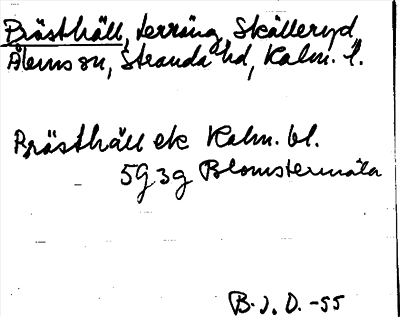 Brästhäll, terräng, Skälleryd,
Ålems sn, Stranda hd, Kalm. l.
Brästhäll ek Kalm. bl.
5G 3g Blomstermåla
B. J. D. -55